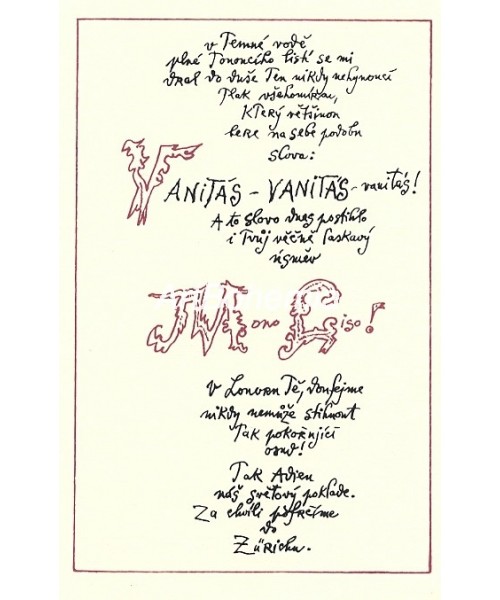 v Temné vodě
plné Tonoucího listí se mi
dral do duše Ten nikdy nehynoucí
Tlak všehomíru,
Který většinou
bere na sebe podobu
slova:
VANITÁS - VANITÁS - vanitás!
A to slovo dnes postihlo
i Tvůj věčně laskavý
úsměv
Mono Liso!
V Louvru Tě, doufejme
nikdy nemůže stihnout
Tak pokořující
osud!
Tak Adieu
náš světový poklade.
Za chvíli
do
Zürichu.